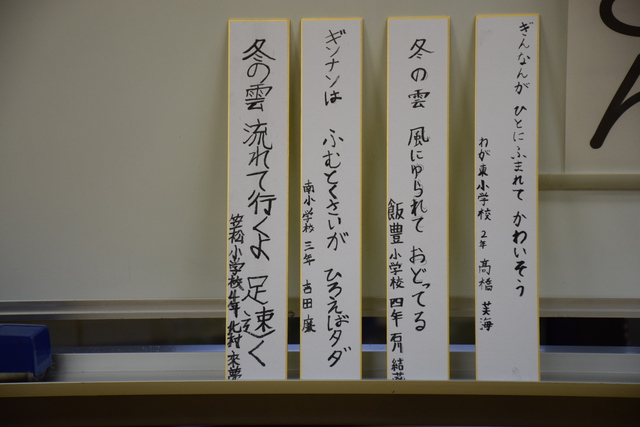 ぎんなんが ひとにふまれて かわいそう
わが東小学校 2年 高橋 芙海
冬の雲 風にゆられて おどってる
飯豊小学校 四年 石川 結
ギンナンは ふむとくさいが ひろえばタダ
南小学校 三年 古田 慶
冬の雲 流れて行くよ 足速く
笠松小学校 4年 北村 來夢